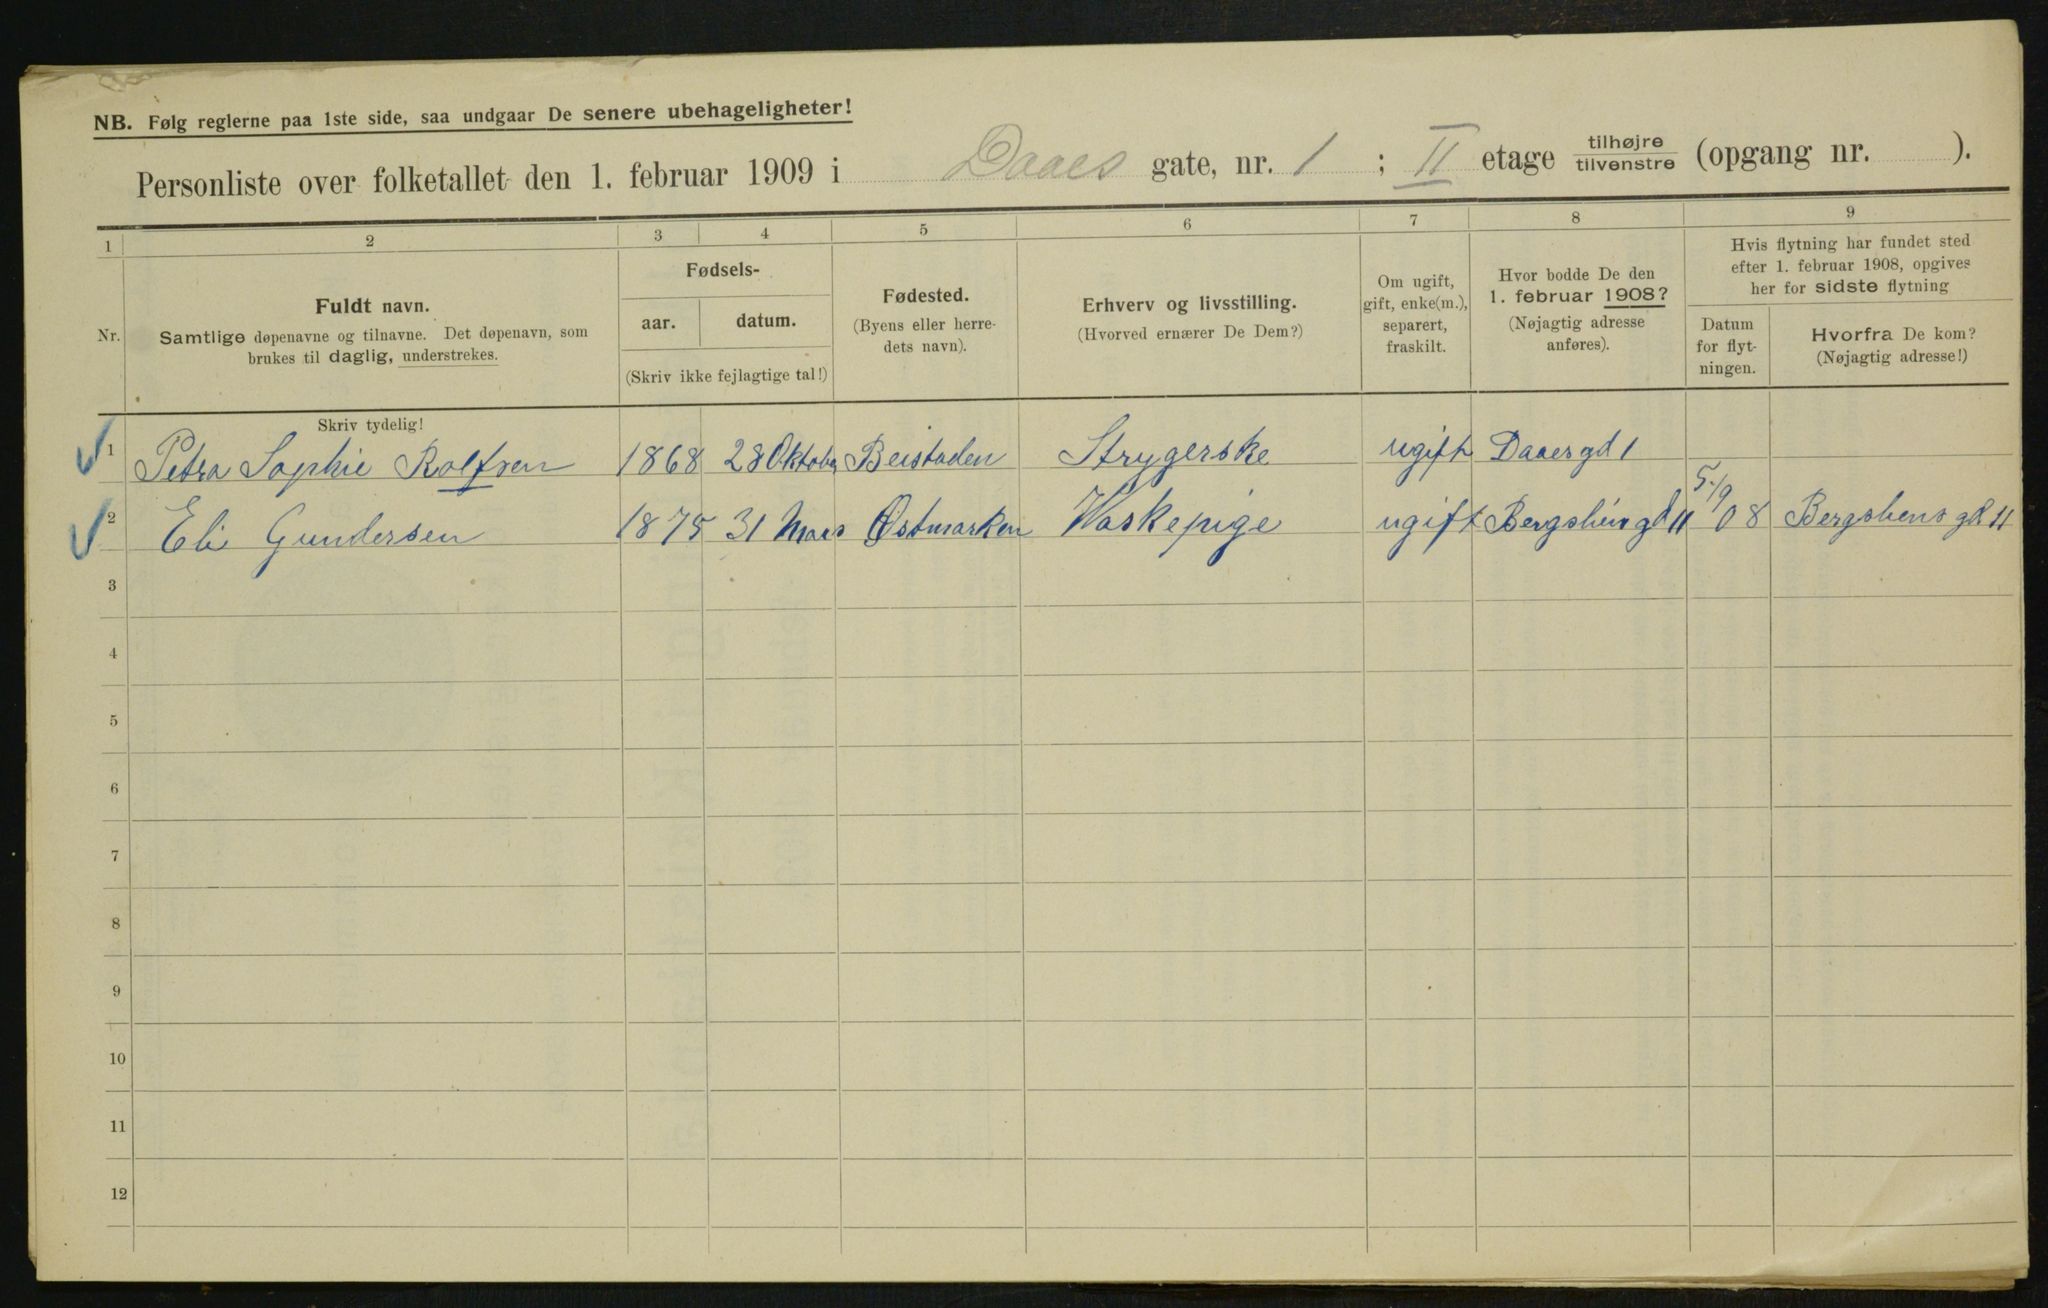 NB. Følg reglerne paa 1ste side, saa undgaar De senere ubehageligheter!
Personliste over folketallet den 1. februar 1909 i Daaes gate, nr. 1 ; II etage tilhøjre tilvenstre (opgang nr. ).
1 2 3 4 5 6 7 8 9
Nr.
Fuldt navn.
Samtlige døpenavne og tilnavne. Det døpenavn, som
brukes til daglig, understrekes.
Fødsels-
aar. datum.
(Skriv ikke fejlagtige tal!)
Fødested.
(Byens eller herre-
dets navn).
Erhverv og livsstilling.
(Hvorved ernærer De Dem?)
Om ugift,
gift, enke(m.),
separert,
fraskilt.
Hvor bodde De den
1. februar 1908?
(Nøjagtig adresse
anføres).
Hvis flytning har fundet sted
efter 1. februar 1908, opgives
her for sidste flytning
Datum
for flyt-
ningen.
Hvorfra De kom?
(Nøjagtig adresse!)
Skriv tydelig!
1 Petra Sophie Rolfsen 1868 28 Oktober Beistaden Strygerske ugift Daaes gd 1
2 Eli Gundersen 1875 31 Mars Østmarken Waskepige ugift Bergsliens gd 11 5/9 08 Bergsliens gd 11
3
4
5
6
7
8
9
10
11
12